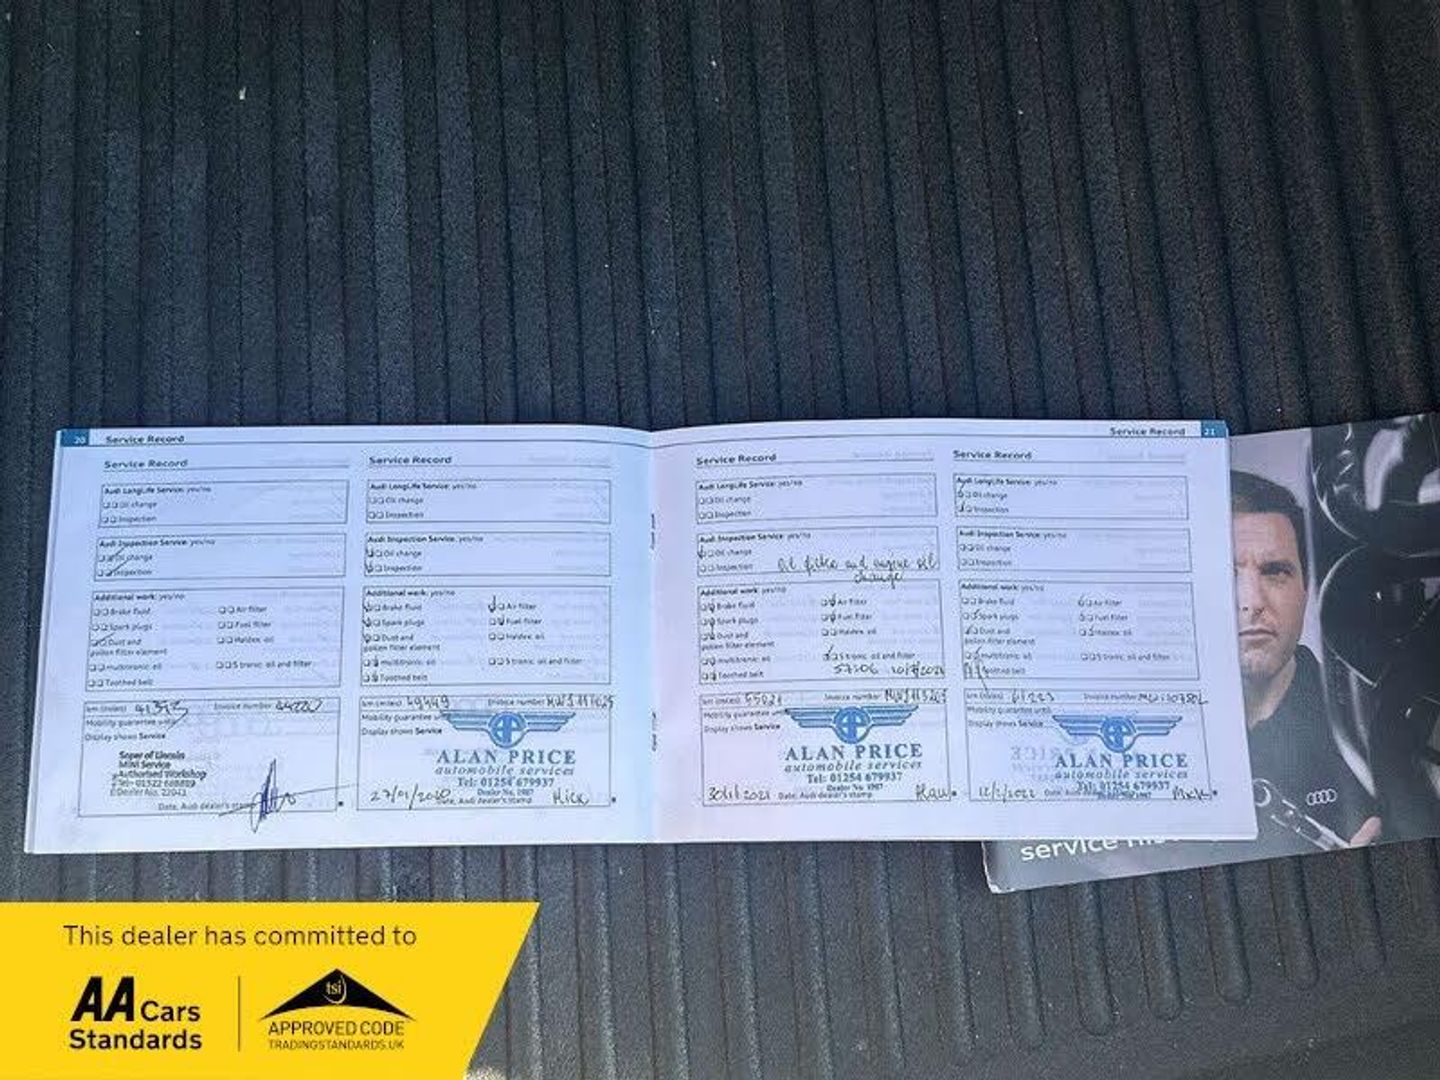 20 Service Record
Service Record
Audi LongLife Service: yes/no
Oil change
Inspection
Audi Inspection Service: yes/no
Oil change
Inspection
Additional work: yes/no
Brake fluid
Air filter
Spark plugs
Fuel filter
Dust and
pollen filter element
Haldex: oil
multitronic: oil
S tronic: oil and filter
Toothed belt
km (miles)
Invoice number
Mobility guarantee until
Display shows Service
Soper of Lincoln
MINI Service
Authorised Workshop
Dealer No. 22041
Date, Audi dealer's stamp
Service Record
Audi LongLife Service: yes/no
Oil change
Inspection
Audi Inspection Service: yes/no
Oil change
Inspection
Additional work: yes/no
Brake fluid
Air filter
Spark plugs
Fuel filter
Dust and
pollen filter element
Haldex: oil
multitronic: oil
S tronic: oil and filter
Toothed belt
km (miles) 49449
Invoice number
Mobility guarantee
Display shows Service
ALAN PRICE
automobile services
Tel: 01254 679937
Dealer No. 1987
27/01/2020 Date, Audi dealer's stamp Mick
Service Record 21
Service Record
Audi LongLife Service: yes/no
Oil change
Inspection
Audi Inspection Service: yes/no
Oil change
Inspection
Oil filter and engine oil
change
Additional work: yes/no
Brake fluid
Air filter
Spark plugs
Fuel filter
Dust and
pollen filter element
Haldex: oil
multitronic: oil
S tronic: oil and filter
Toothed belt
km (miles) 55021
Invoice number
Mobility guarantee
Display shows Service
ALAN PRICE
automobile services
Tel: 01254 679937
Dealer No. 1987
Date, Audi dealer's stamp
Service Record
Audi LongLife Service: yes/no
Oil change
Inspection
Audi Inspection Service: yes/no
Oil change
Inspection
Additional work: yes/no
Brake fluid
Air filter
Spark plugs
Fuel filter
Dust and
pollen filter element
Haldex: oil
multitronic: oil
S tronic: oil and filter
Toothed belt
km (miles) 61223
Invoice number
Mobility guarantee until
Display shows Service
ALAN PRICE
automobile services
Tel: 01254 679937
Date, Audi dealer's stamp
service
This dealer has committed to
AA Cars
Standards
tsi
APPROVED CODE
TRADINGSTANDARDS.UK